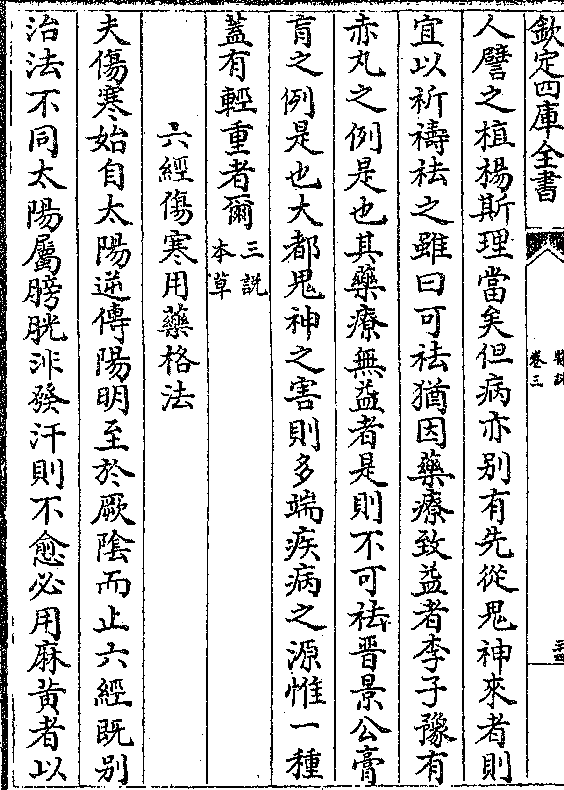 欽定四庫全書
醫說
卷三
人譬之植楊斯理當矣但病亦别有先從鬼神來者則
宜以祈禱祛之雖曰可祛猶因藥療致益者李子豫有
赤丸之例是也其藥療無益者是則不可祛晉景公膏
肓之例是也大都鬼神之害則多端疾病之源惟一種
蓋有輕重者爾三説本草
六經傷寒用藥格法
夫傷寒始自太陽逆傳陽明至於厥陰而止六經既别
治法不同太陽屬膀胱非發汗則不愈必用麻黃者以